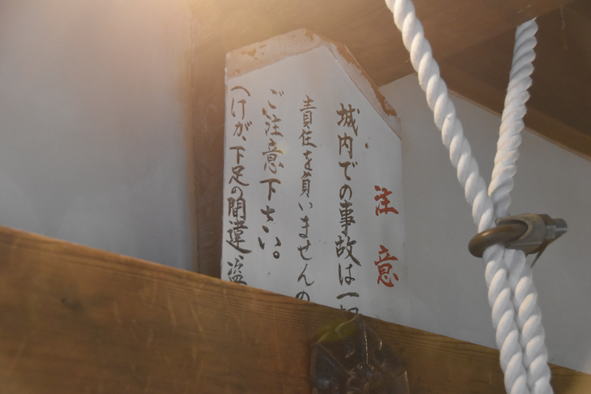 注意
城内での事故は一切
責任を負いませんの
ご注意下さい。
(けが、下足の間違、盗